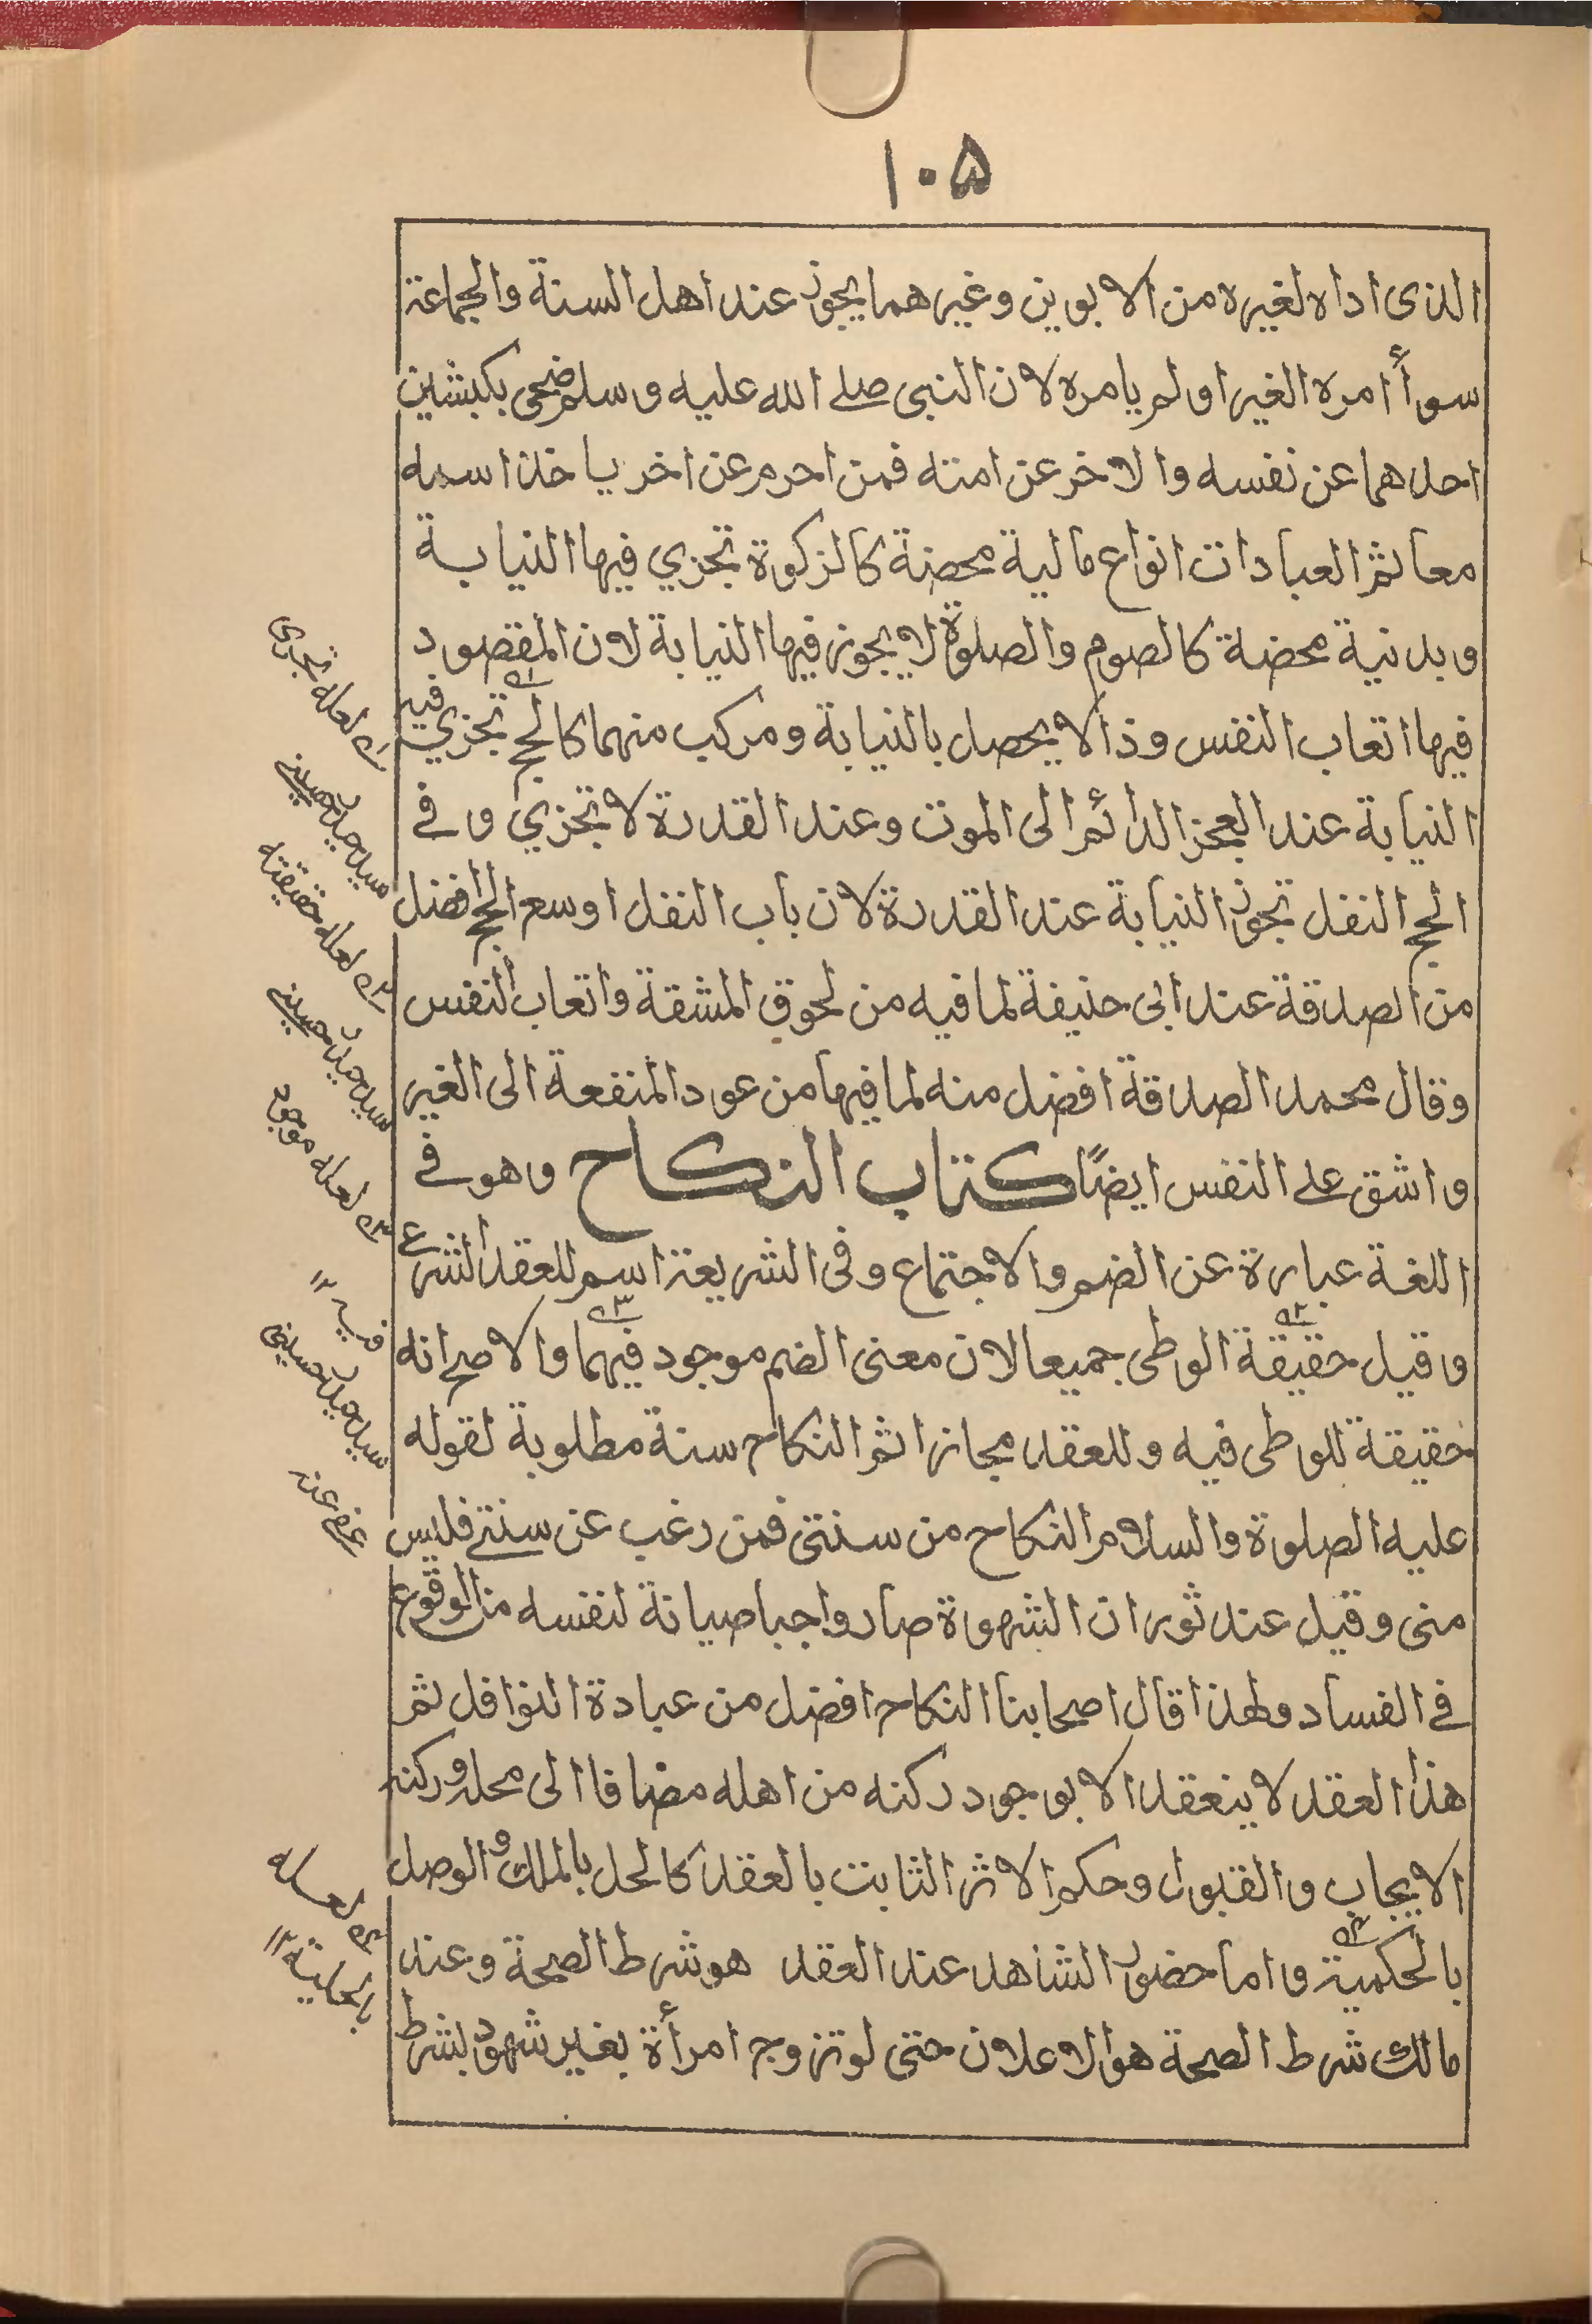 ١٠٥
الذى اداه لغيره من الابوين وغيرهما يجوز عند اهل السنة والجماعة
سوأ أمره الغير او لم يامره لان النبى صلے الله عليه وسلم ضحى بكبشين
احدهما عن نفسه والاخر عن امته فمن احرم عن اخر ياخذ اسمه
معا ثم العبادات انواع مالية محضة كالزكوة تجزي فيها النيابة
وبدنية محضة كالصوم والصلوة لا يجوز فيها النيابة لان المقصود
فيها اتعاب النفس وذا لا يحصل بالنيابة ومركب منهما كالحج تجزي فيه
النيابة عند العجز الدائم الى الموت وعند القدرة لا تجزي وفے
الحج النفل تجوز النيابة عند القدرة لان باب النفل اوسع الحج افضل
من الصدقة عند ابى حنيفة لما فيه من لحوق المشقة واتعاب النفس
وقال محمد الصدقة افضل منه لما فيها من عود المنفعة الى الغير
واشق علے النفس ايضًا كتاب النكاح وهو فے
اللغة عبارة عن الضم والاجتماع وفى الشريعة اسم للعقد الشرع
وقيل حقيقة الوطى جميعا لان معنى الضم موجود فيهما والاصح انه
حقيقة للوطى فيه وللعقد مجازا ثم النكاح سنة مطلوبة لقوله
عليه الصلوة والسلام النكاح من سنتى فمن رغب عن سنتے فليس
منى وقيل عند ثوران الشهوة صار واجبا صيانة لنفسه من الوقوع
فے الفساد ولهذا قال اصحابنا النكاح افضل من عبادة النوافل ثم
هذا العقد لا ينعقد الا بوجود ركنه من اهله مضافا الى محله وركنه
الايجاب والقبول وحكم الاثر الثابت بالعقد كالحل بالملك والوصل
بالحكمية واما حضور الشاهد عند العقد هو شرط الصحة وعند
مالك شرط الصحة هو الاعلان حتى لو تزوج امرأة بغير شهود بشرط
١ه لعله تجرى
سيد حيدر حسينے
٢ه لعله حقيقته
سيد حيدر حسينے
٣ه لعله موجود
فيه ١٢
سيد حيدر حسينى
عفے عنه
٤ه لعله